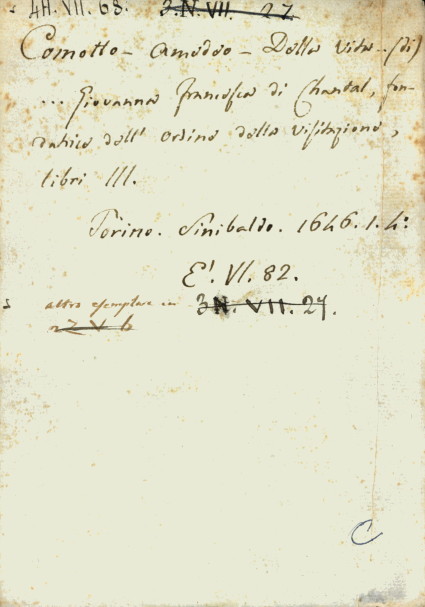 4H. VII. 68. 3. N. VII. 27
Comotto - Amedeo - Della Vita .. (di)
... Giovanna Francesca di Chantal, fon-
datrice dell' ordine della Visitazione,
libri III.
Torino. Sinibaldo. 1646. 1. 4:
E'. VI. 82.
altro esemplare in 3N. VII. 27.
C